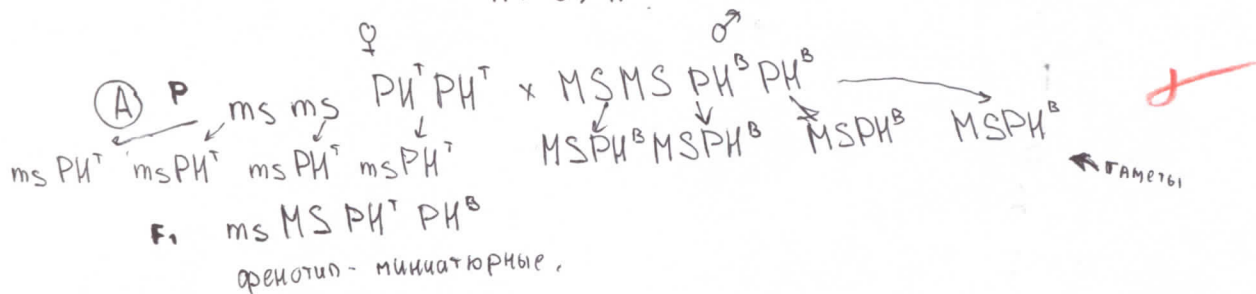 ♀ ♂
A P ms ms PH^T PH^T × MSMS PH^B PH^B
ms PH^T msPH^T msPH^T msPH^T MSPH^B MSPH^B MSPH^B MSPH^B
гаметы
F₁ ms MS PH^T PH^B
фенотип - миниатюрные.